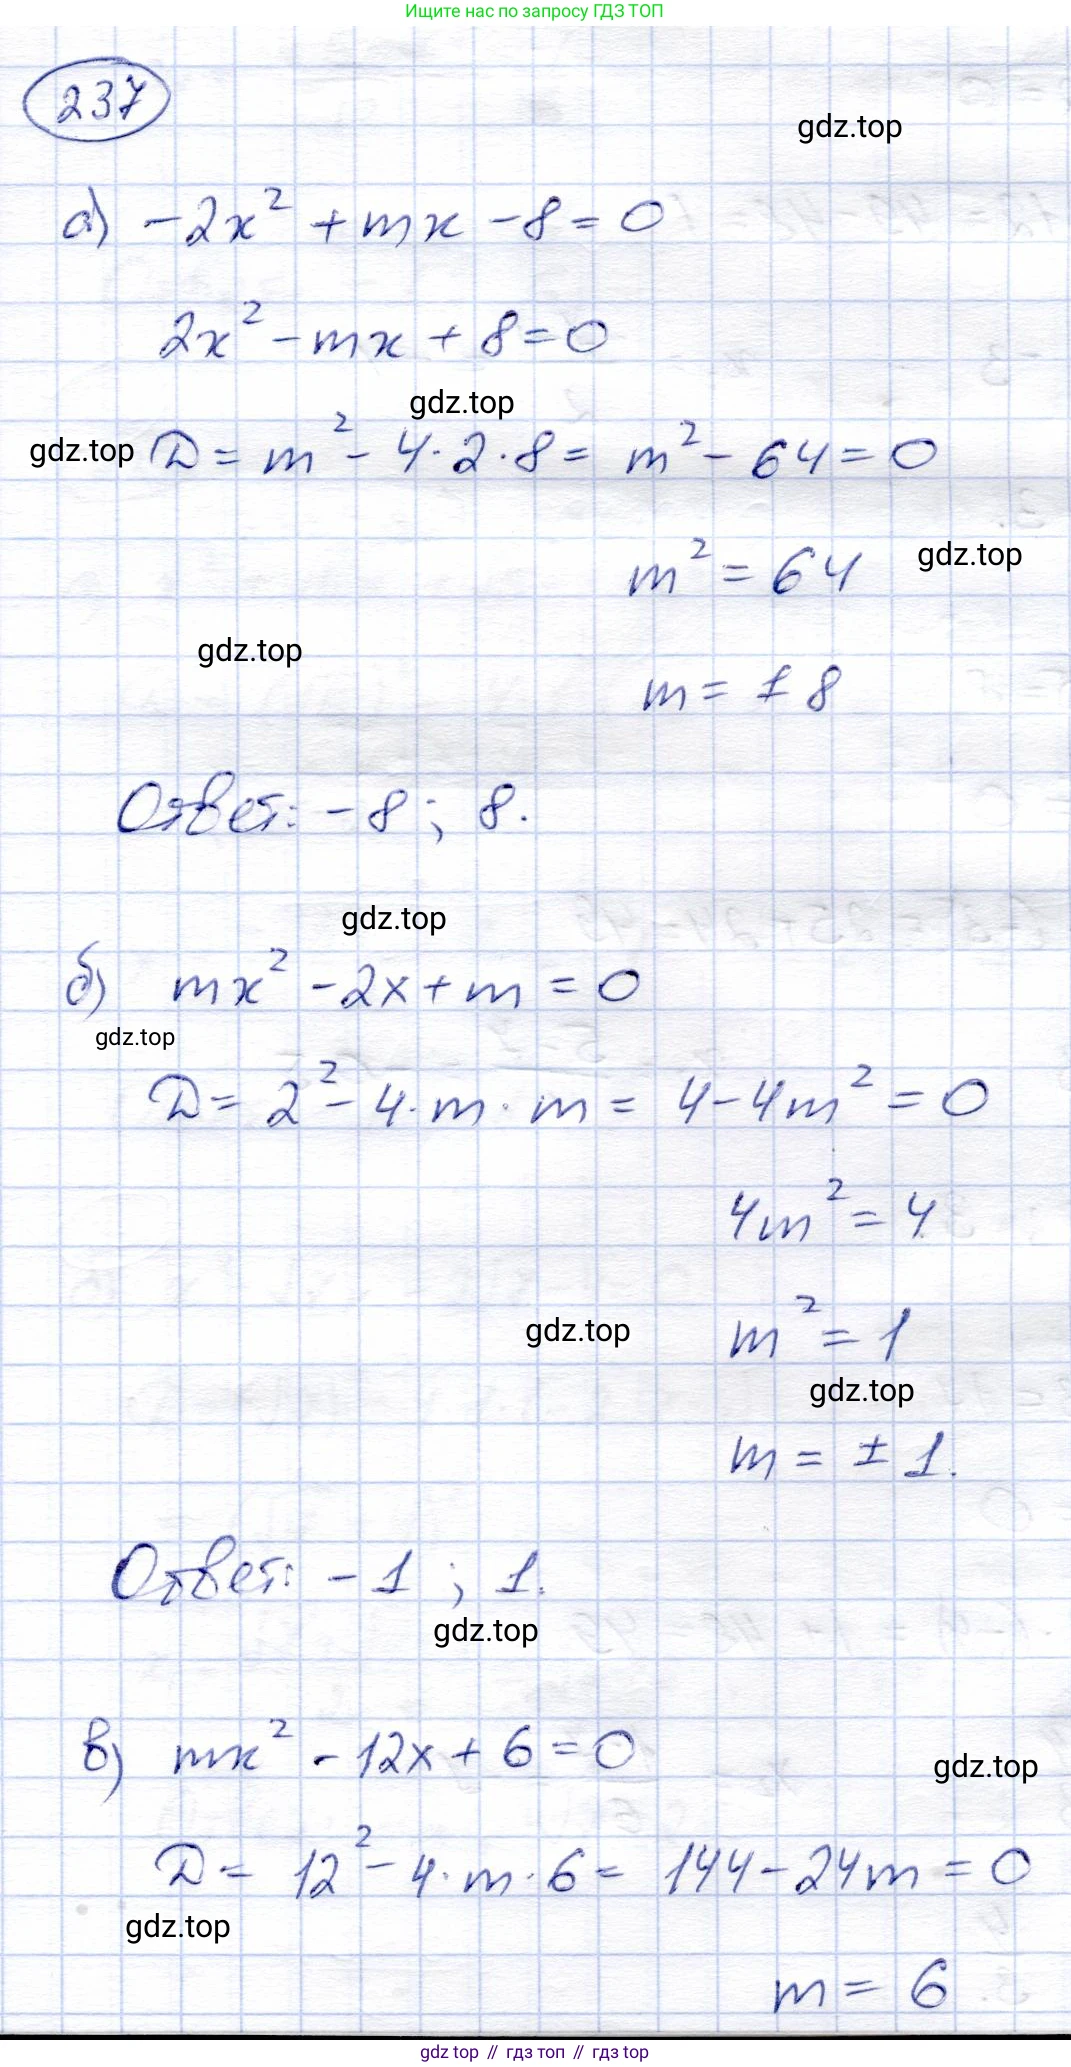 Ищите нас по запросу ГДЗ ТОП
237
gdz.top
а) -2x² + mx - 8 = 0
2x² - mx + 8 = 0
gdz.top
gdz.top
D = m² - 4·2·8 = m² - 64 = 0
m² = 64
gdz.top
gdz.top
m = ±8
Ответ: -8; 8.
gdz.top
б) mx² - 2x + m = 0
gdz.top
D = 2² - 4·m·m = 4 - 4m² = 0
4m² = 4
m² = 1
gdz.top
gdz.top
m = ±1.
Ответ: -1; 1.
gdz.top
в) mx² - 12x + 6 = 0
gdz.top
D = 12² - 4·m·6 = 144 - 24m = 0
gdz.top
m = 6
gdz top // гдз топ // гдз top